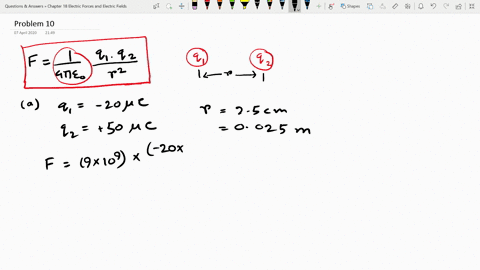 Questions & Answers » Chapter 18 Electric Forces and Electric Fields
Problem 10
07 April 2020 21:49
F = 1/4πε₀ q₁.q₂/r²
q₁ q₂
r
(a) q₁ = -20 μC r = 2.5 cm
q₂ = +50 μC = 0.025 m
F = (9×10⁹) × (-20×